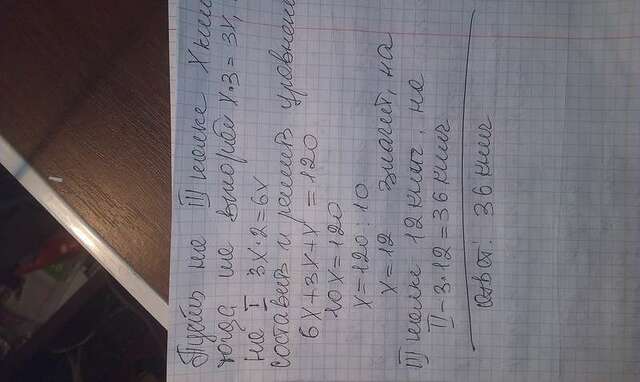 Пусть на III полке X книг
тогда на второй X·3 = 3X,
на I 3X·2=6X
составить и решить уравнение
6X+3X+X=120
10X=120
X=120:10
X=12 значит, на
III полке 12 книг, на
II-3·12=36 книг
ответ: 36 книг